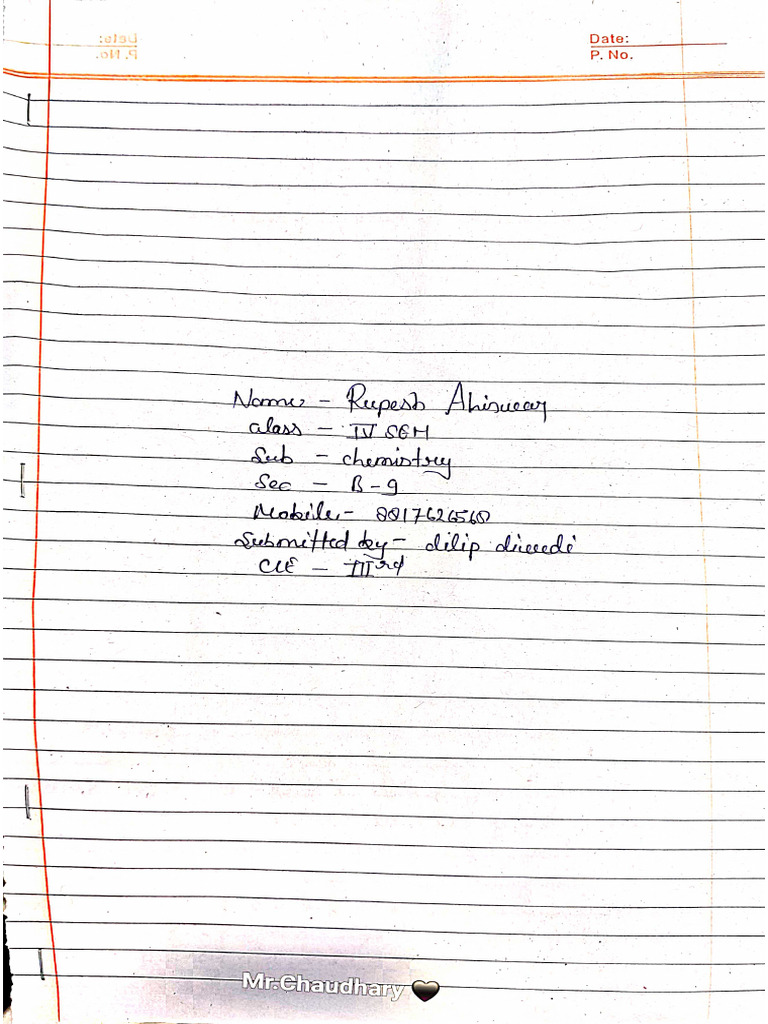 Date:
P. No.
Name - Rupesh Ahirwar
class - IV SEM
Sub - chemistry
Sec - B-9
Mobile -
Submitted by - dilip diwedi
CIE - IIIrd
Mr.Chaudhary 🖤